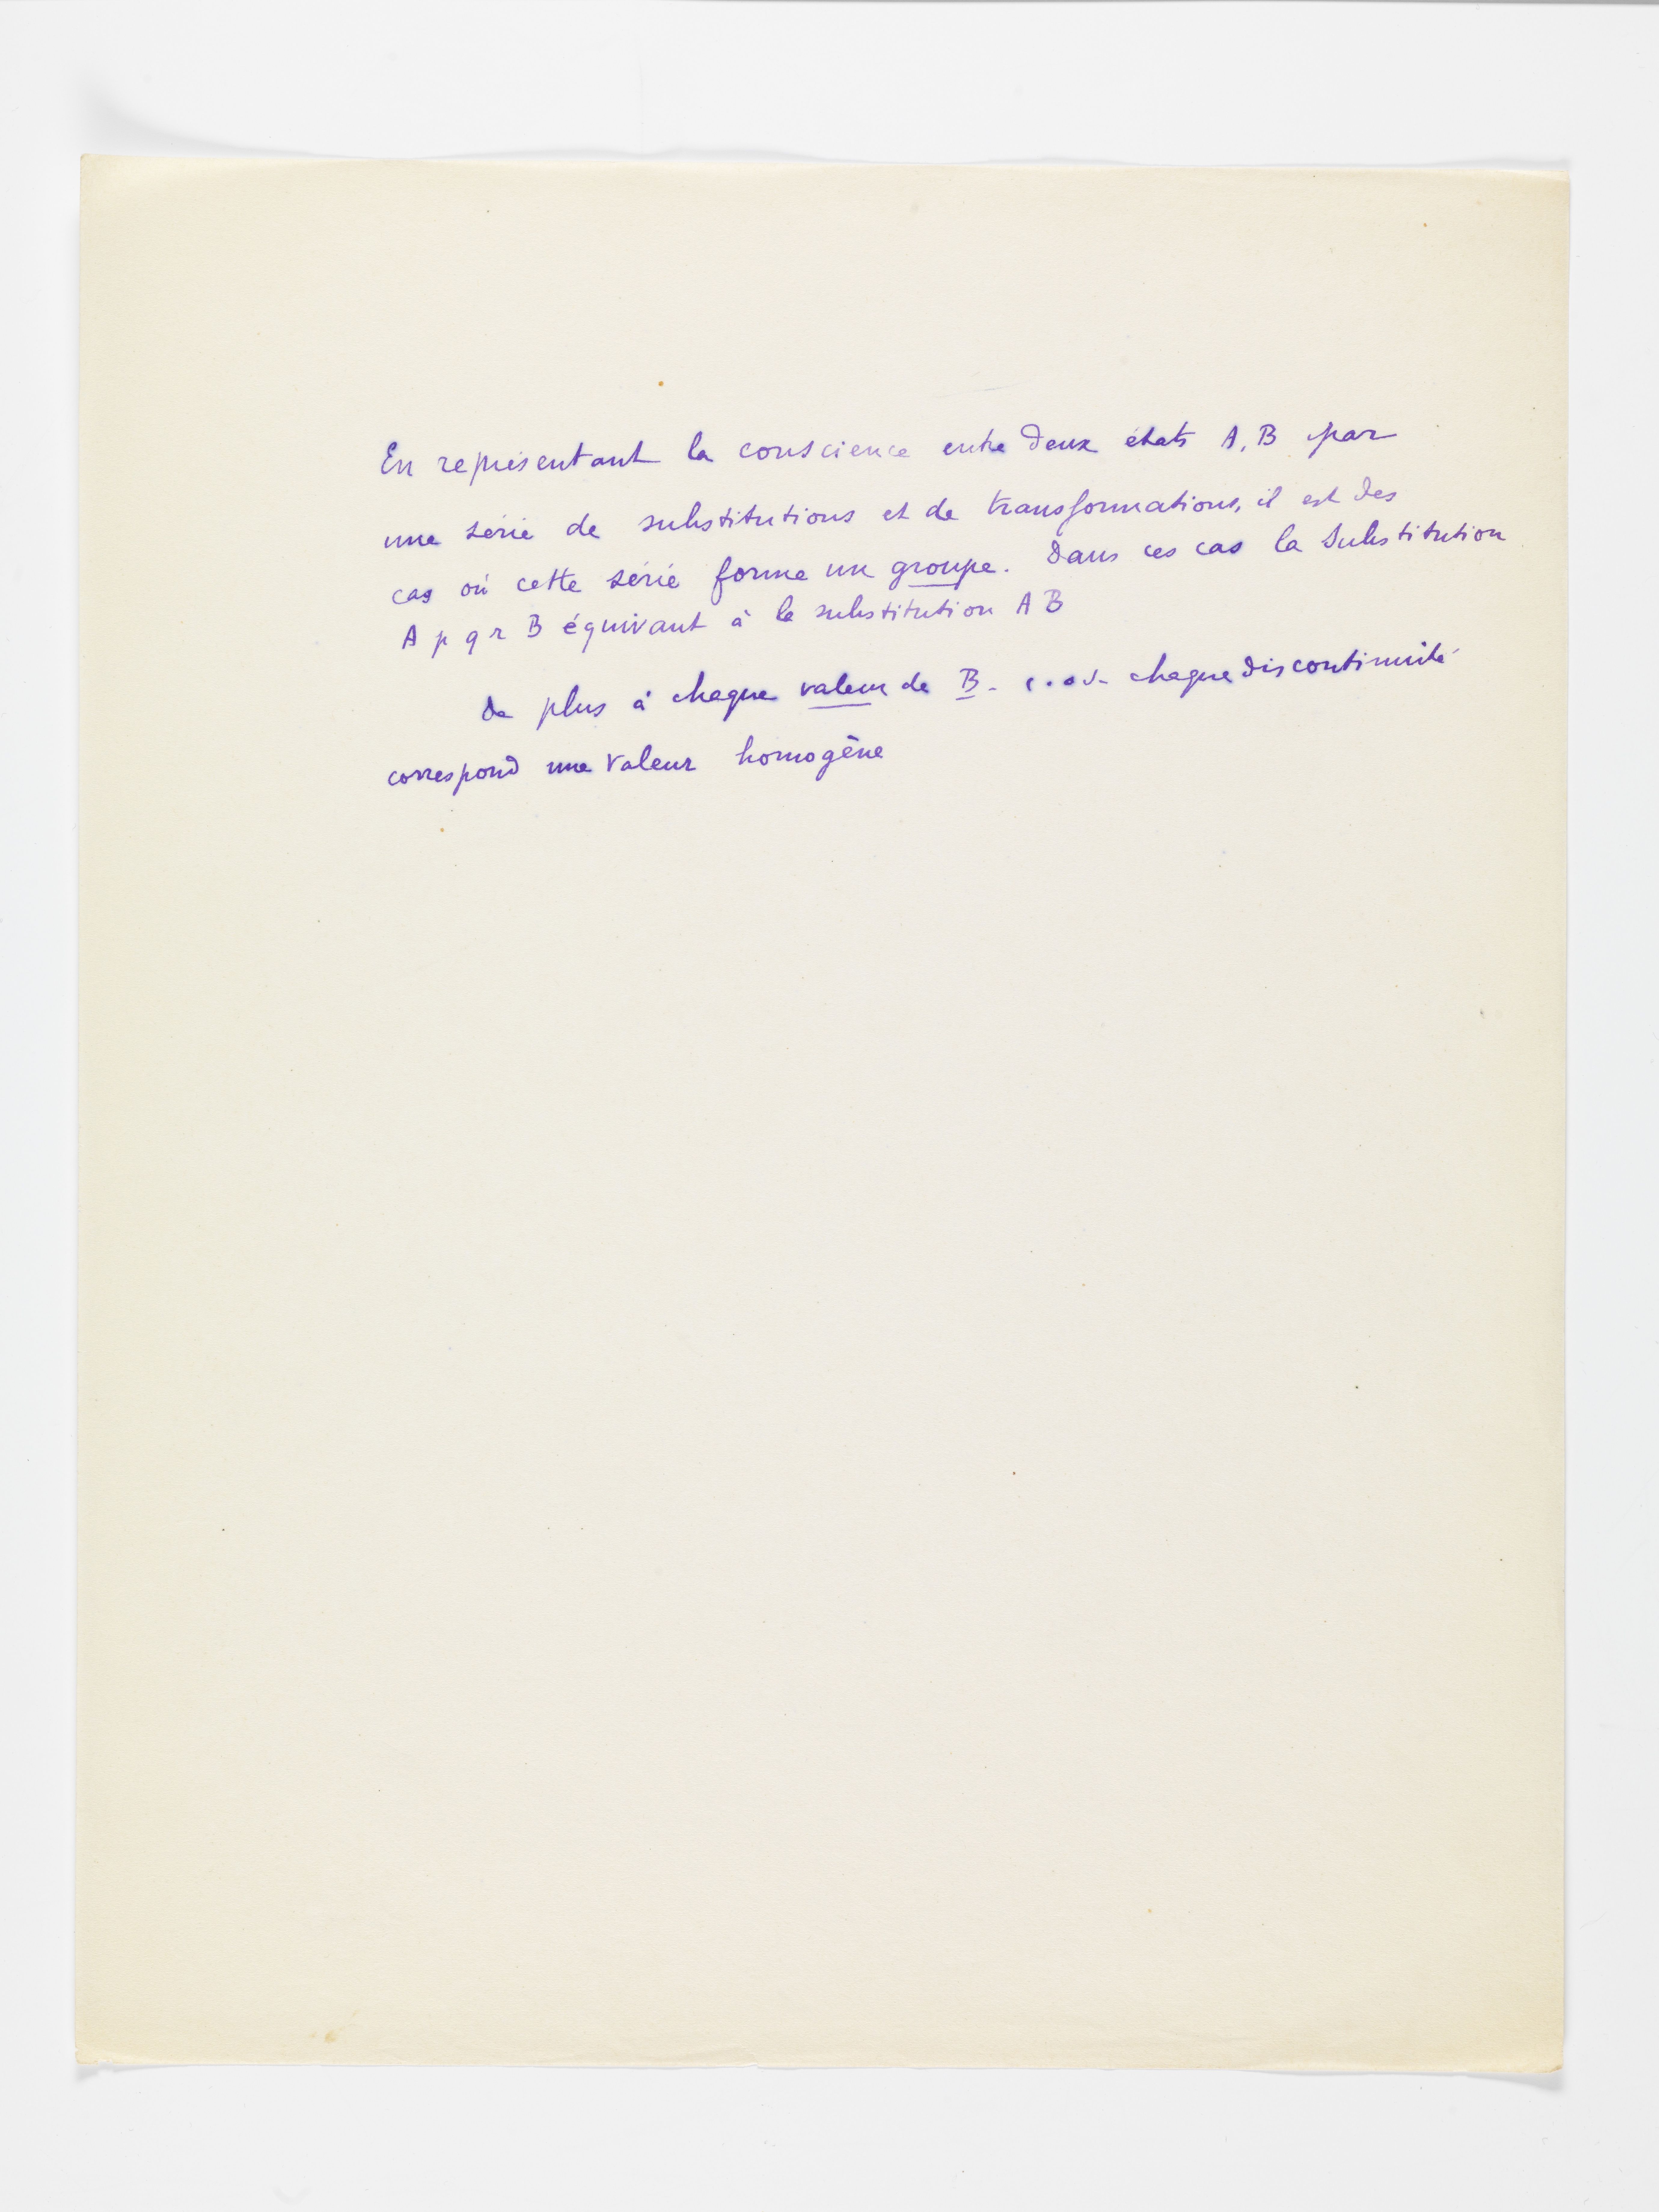 En représentant la conscience entre deux états A, B par
une série de substitutions et de transformations, il est des
cas où cette série forme un groupe. Dans ces cas la Substitution
A p q r B équivaut à la substitution A B
de plus à chaque valeur de B - c.a.d - chaque discontinuité
correspond une valeur homogène